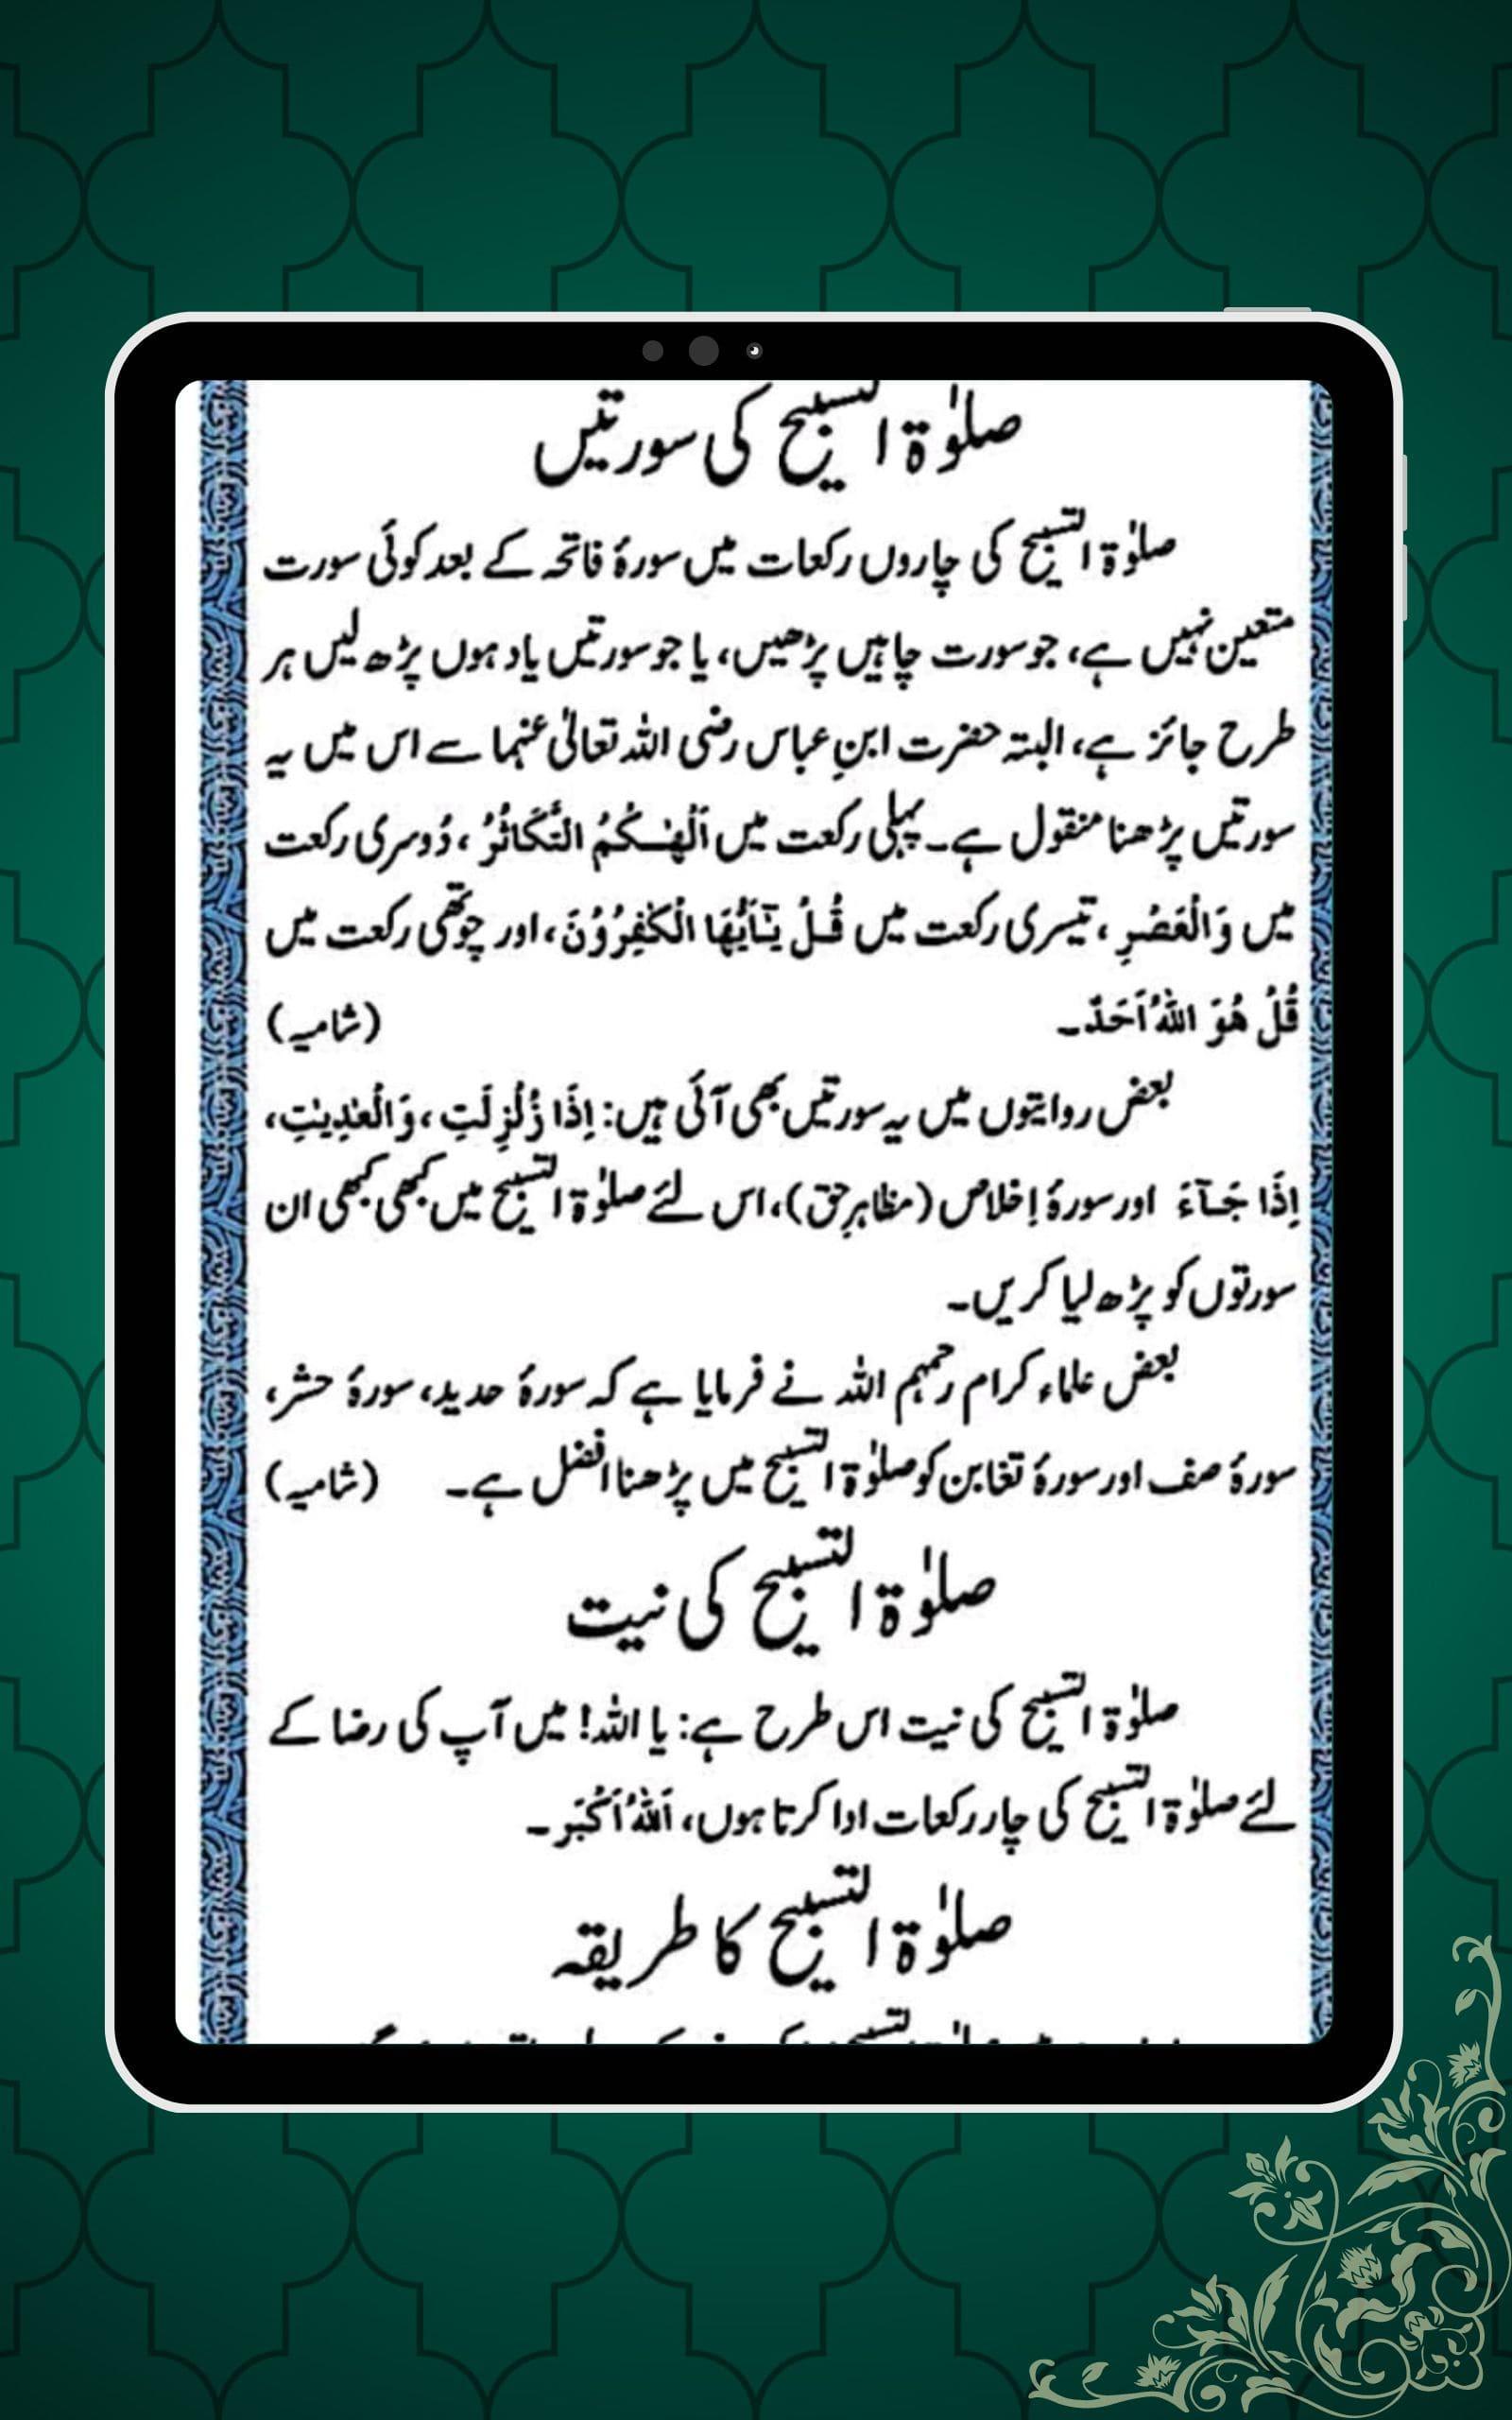 صلوٰۃ التسبیح کی سورتیں
صلوٰۃ التسبیح کی چاروں رکعات میں سورۂ فاتحہ کے بعد کوئی سورت
متعین نہیں ہے، جو سورت چاہیں پڑھیں، یا جو سورتیں یاد ہوں پڑھ لیں ہر
طرح جائز ہے، البتہ حضرت ابنِ عباس رضی اللہ تعالیٰ عنہما سے اس میں یہ
سورتیں پڑھنا منقول ہے۔ پہلی رکعت میں اَلْهٰىكُمُ التَّكَاثُرُ، دُوسری رکعت
میں وَالْعَصْرِ، تیسری رکعت میں قُلْ يٰٓاَيُّهَا الْكٰفِرُوْنَ، اور چوتھی رکعت میں
قُلْ هُوَ اللّٰهُ اَحَدٌ۔ (شامیہ)
بعض روایتوں میں یہ سورتیں بھی آئی ہیں: اِذَا زُلْزِلَتِ، وَالْعٰدِيٰتِ،
اِذَا جَآءَ اور سورۂ اِخلاص (مظاہرِ حق)، اس لئے صلوٰۃ التسبیح میں کبھی کبھی ان
سورتوں کو پڑھ لیا کریں۔
بعض علماء کرام رحمہم اللہ نے فرمایا ہے کہ سورۂ حدید، سورۂ حشر،
سورۂ صف اور سورۂ تغابن کو صلوٰۃ التسبیح میں پڑھنا افضل ہے۔ (شامیہ)
صلوٰۃ التسبیح کی نیت
صلوٰۃ التسبیح کی نیت اس طرح ہے: یا اللہ! میں آپ کی رضا کے
لئے صلوٰۃ التسبیح کی چار رکعات ادا کرتا ہوں، اَللّٰهُ اَكْبَر۔
صلوٰۃ التسبیح کا طریقہ